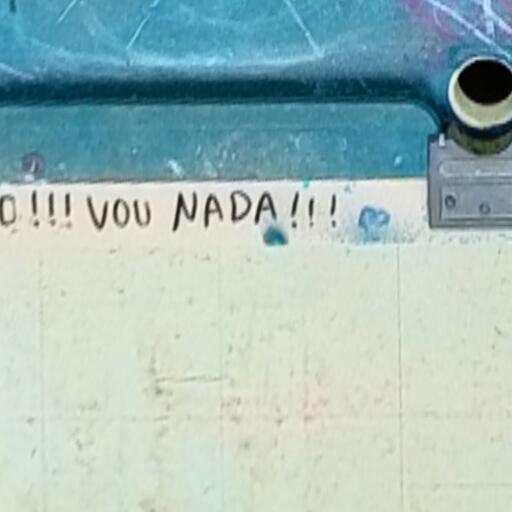 O!!! VOU NADA!!!